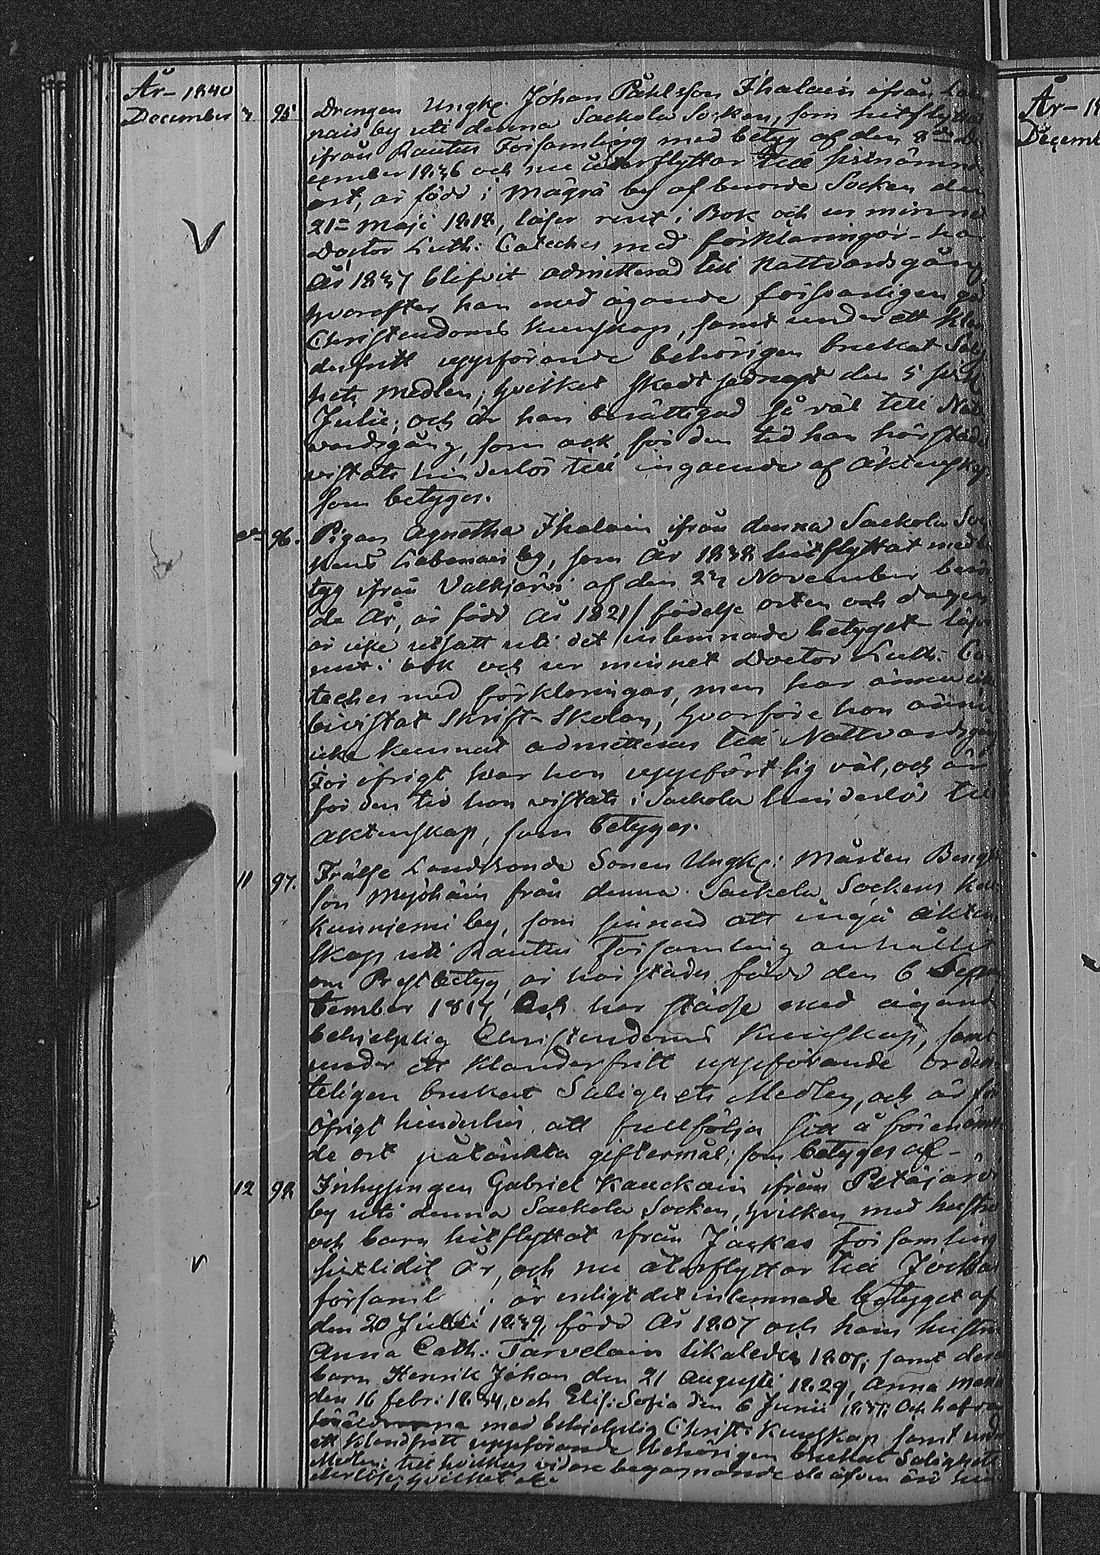 År 1840
December 2 95 Drengen Ungk. Johan Påhlsson Ihalain ifrån
by uti denna Sackola Socken, som hitflyttat
ifrån Rautus Församling med betyg af den
cember 1836 och nu återflyttar till sistnämnde
ort, är född i Magrä by af berörde Socken den
21ne Maji 1818, läser rent i Bok och ur minnet
Doctor Luth: Cateches med förklaringar, har
År 1837 blifvit admitterad till Nattvardsgång
hvarefter han med ägande försvarligen god
Christendoms kunskap, samt under ett klan
derfritt uppförande behörigen brukat Salig
hets medlen, hvilket skedt sednast den 5 sistl.
Julii; och är han berättigad så väl till Natt
vardsgång, som ock för den tid han härstädes
vistats hinderlös till ingående af Äktenskap
som betyges.
96. Pigan Agnetha Ihalain ifrån denna Sackola Soc
kens Liebemais by, som År 1838 hitflyttat med be
tyg ifrån Valkjärvi af den 24 November berör
de År, är född År 1821/ födelse orten och dagen
är icke utsatt uti det inlemnade betyget läser
rent i bok och ur minnet Doctor Luth: Ca
teches med förklaringar, men har ännu icke
bevistat Skrift-Skolan, hvarföre hon ännu
icke kunnat admitteras till Nattvardsgång
För öfrigt har hon uppfört sig väl, och är
för den tid hon vistats i Sackola hinderlös till
äktenskap, som betyges.
11 97. Frälse Landbonde Sonen Ungk: Mårten Bengts
son Myöhäin från denna Sackola Sockens
Kunniemi by, som sinnad att ingå äkten
skap uti Rautus Församling anhållit
om Prestbetyg, är härstädes född den 6 Sep
tember 1817, Och har städse med ägande
behjelplig Christendoms Kunskap, samt
under ett klanderfritt uppförande orden
teligen brukat Salighets Medlen, och är för
öfrigt hinderlös att fullfölja sitt å förenämn
de ort påtänkta giftermål; som betyges af
12 98 Inhysingen Gabriel Kauckain ifrån Petäjärvi
by uti denna Sackola Socken, hvilken med hustru
och barn hitflyttat ifrån Jackas Församling
sistlidit År, och nu återflyttar till Jockas
församl; är enligt det inlemnade betyget af
den 20 Julii 1839, född År 1807 och hans hustru
Anna Cath: Tarvelain likaledes 1807, samt deras
barn Henrik Johan den 21 Augusti 1829, Anna Maria
den 16 Febr: 1834, och Elis: Sofia den 6 Junii 1837; Och hafva
föräldrarna med behjelplig Christ: Kunskap samt under
ett klandfritt uppförande behörigen brukat Salighets
Medlen; till hvilkas vidare begagnande de äfven äro hin
derlöse; hvilket etc
År 18
Decemb